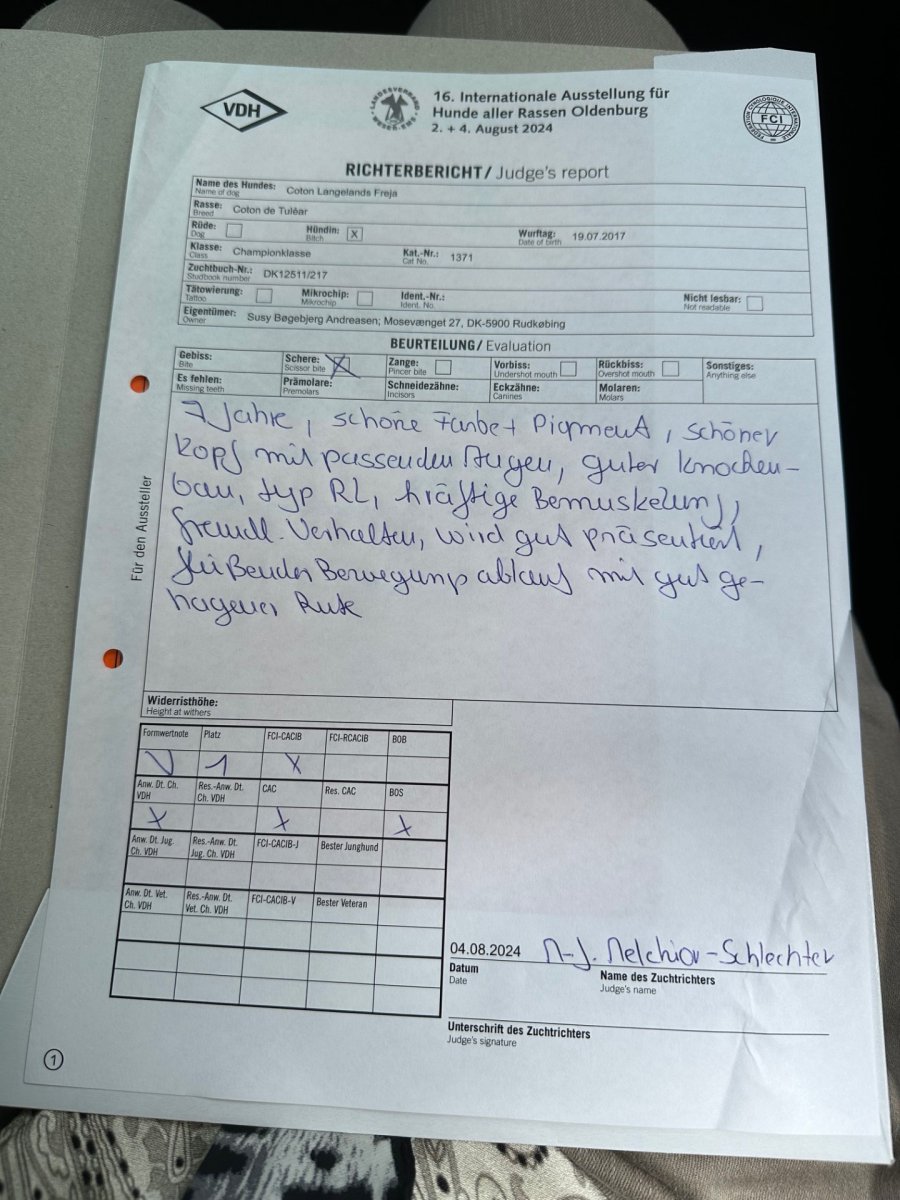 VDH
LANDESVERBAND WESER-EMS
16. Internationale Ausstellung für
Hunde aller Rassen Oldenburg
2. + 4. August 2024
FEDERATION CYNOLOGIQUE INTERNATIONALE
FCI
RICHTERBERICHT/ Judge's report
Name des Hundes: Coton Langelands Freja
Name of dog
Rasse: Coton de Tuléar
Breed
Rüde: Hündin: X Wurftag: 19.07.2017
Dog Bitch Date of birth
Klasse: Championklasse Kat.-Nr.: 1371
Class Cat No.
Zuchtbuch-Nr.: DK12511/217
Studbook number
Tätowierung: Mikrochip: Ident.-Nr.: Nicht lesbar:
Tattoo Mikrochip Ident. No. Not readable
Eigentümer: Susy Bøgebjerg Andreasen; Mosevænget 27, DK-5900 Rudkøbing
Owner
BEURTEILUNG/ Evaluation
Gebiss: Schere: X Zange: Vorbiss: Rückbiss: Sonstiges:
Bite Scissor bite Pincer bite Undershot mouth Overshot mouth Anything else
Es fehlen: Prämolare: Schneidezähne: Eckzähne: Molaren:
Missing teeth Premolars Incisors Canines Molars
Für den Aussteller
7 Jahre, schöne Farbe + Pigment, schöner
Kopf mit passenden Augen, guter Knochen-
bau, typ RL, kräftige Bemuskelung,
freundl. Verhalten, wird gut präsentiert,
fließender Bewegungsablauf mit gut ge-
tragener Rute
Widerristhöhe:
Height at withers
Formwertnote Platz FCI-CACIB FCI-RCACIB BOB
V 1 X
Anw. Dt. Ch. VDH Res.-Anw. Dt. Ch. VDH CAC Res. CAC BOS
X X X
Anw. Dt. Jug. Ch. VDH Res.-Anw. Dt. Jug. Ch. VDH FCI-CACIB-J Bester Junghund
Anw. Dt. Vet. Ch. VDH Res.-Anw. Dt. Vet. Ch. VDH FCI-CACIB-V Bester Veteran
04.08.2024 M-J. Melchior-Schlechter
Datum Name des Zuchtrichters
Date Judge's name
Unterschrift des Zuchtrichters
Judge's signature
1